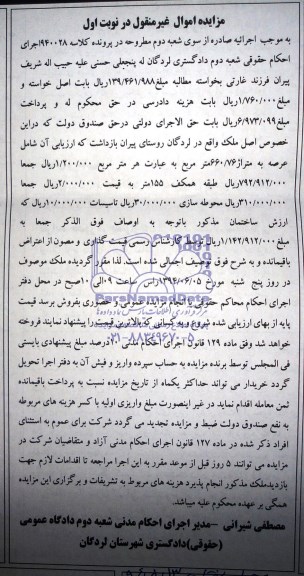 مزایده اموال غیرمنقول در نوبت اول
به موجب اجرائیه صادره از سوی شعبه دوم مطروحه در پرونده کلاسه ۹۴۰۰۲۸اجرای
احکام حقوقی شعبه دوم دادگستری لردگان له پنجعلی حسنی علیه حبیب اله شریف
پیران فرزند غارتی بخواسته مطالبه مبلغ۱۳۹/۴۶۱/۹۸۸ریال بابت اصل خواسته و
مبلغ۱/۷۶۰/۰۰۰ریال بابت هزینه دادرسی در حق محکوم له و پرداخت
مبلغ۶/۹۷۳/۰۹۹ریال بابت حق الاجرای دولتی درحق صندوق دولت که دراین
خصوص اصل ملک واقع در لردگان روستای پیران بازداشت که ارزیابی آن شامل
عرصه به متراژ۶۶۰/۷۶متر مربع به عبارت هر متر مربع ۱/۲۰۰/۰۰۰ریال جمعا
۷۹۲/۹۱۲/۰۰۰ریال طبقه همکف ۱۵۵متر به قیمت ۲/۰۰۰/۰۰۰ریال جمعا
۳۱۰/۰۰۰/۰۰۰ریال محوطه سازی ۳۰/۰۰۰/۰۰۰ریال تاسیسات ۱۰/۰۰۰/۰۰۰ریال که
ارزش ساختمان مذکور باتوجه به اوصاف فوق الذکر جمعا به
مبلغ۱/۱۴۲/۹۱۲/۰۰۰ریال توسط کارشناس رسمی قیمت گذاری و مصون از اعتراض
باقیمانده و به شرح فوق توصیف اجمالی شده است.لذا مقرر گردیده ملک موصوف
در روز پنج شنبه مورخ ۱۳۹۴/۰۶/۰۵راس ساعت ۰۹الی ۱۰صبح در محل دفتر
اجرای احکام محاکم حقوقی با انجام مزایده عمومی و حضوری بفروش برسد قیمت
پایه از بهای ارزیابی شده شروع و به کسانی که بالاترین قیمت را پیشنهاد نمایند فروخته
خواهد شد وفق ماده ۱۲۹ قانون اجرای احکام مدنی ۱۰درصد مبلغ پیشنهادی بایستی
فی المجلس توسط برنده مزایده به حساب سپرده واریز و فیش آن به دفتر اجرا تحویل
گردد خریدار می تواند حداکثر یکماه از تاریخ مزایده نسبت به پرداخت باقیمانده
ثمن معامله اقدام نماید در غیر اینصورت مبلغ واریزی اولیه با کسر هزینه های مربوطه
به نفع صندوق دولت ضبط و مزایده تجدید می گردد شرکت برای عموم به استثنای
افراد ذکر شده در ماده ۱۲۷ قانون اجرای احکام مدنی آزاد و متقاضیان شرکت در
مزایده می توانند ۵ روز قبل از موعد مقرر به این اجرا مراجعه تا اقدامات لازم جهت
بازدیدملک مذکور انجام پذیرد هزینه های مربوط به تشریفات و برگزاری این مزایده
همگی بر عهده محکوم علیه میباشد.
مصطفی شیرانی -مدیر اجرای احکام مدنی شعبه دوم دادگاه عمومی
(حقوقی)دادگستری شهرستان لردگان